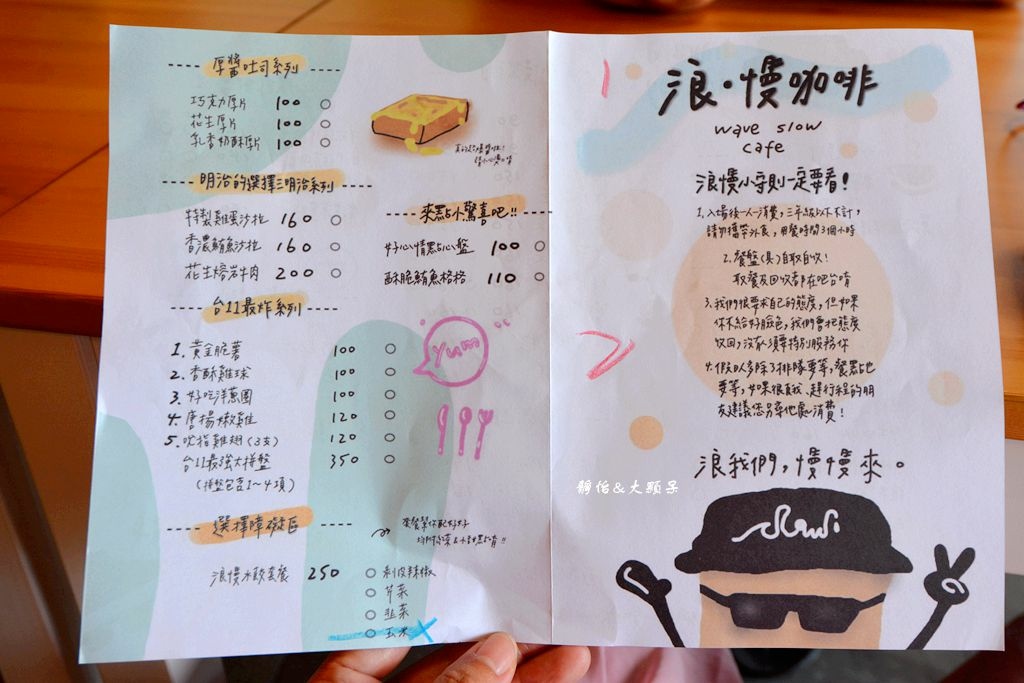 厚醬吐司系列
巧克力厚片 100
花生厚片 100
乳香奶酥厚片 100
明治的選擇三明治系列
特製雞蛋沙拉 160
香濃鮪魚沙拉 160
花生熔岩牛肉 200
來點小驚喜吧!!
好心情點心盤 100
酥脆鮪魚格格 110
台11最炸系列
1. 黃金脆薯 100
2. 香酥雞球 100
3. 好吃洋蔥圈 100
4. 唐揚嫩雞 120
5. 吮指雞翅(3支) 120
台11最強大拼盤 350
(拼盤包含1~4項)
Yum
選擇障礙區
套餐幫你配好好
浪慢水餃套餐 250
剝皮辣椒
芹菜
韭菜
玉米
1
浪·慢咖啡
wave slow
cafe
浪慢小守則一定要看!
1. 入場後一人一消費,三年級以下不計,
請勿攜帶外食,用餐時間3個小時
2. 餐盤(具)自取自收!
取餐及回收都在吧台唷
2
3. 我們很要求自己的態度,但如果
你不給好臉色,我們會把態度
收回,沒人須要特別服務你
4. 假日人多除了排隊要等,餐點也
要等,如果很真我、趕行程的朋
友建議您另尋他處消費!
浪我們,慢慢來。
靜怡&大顆呆